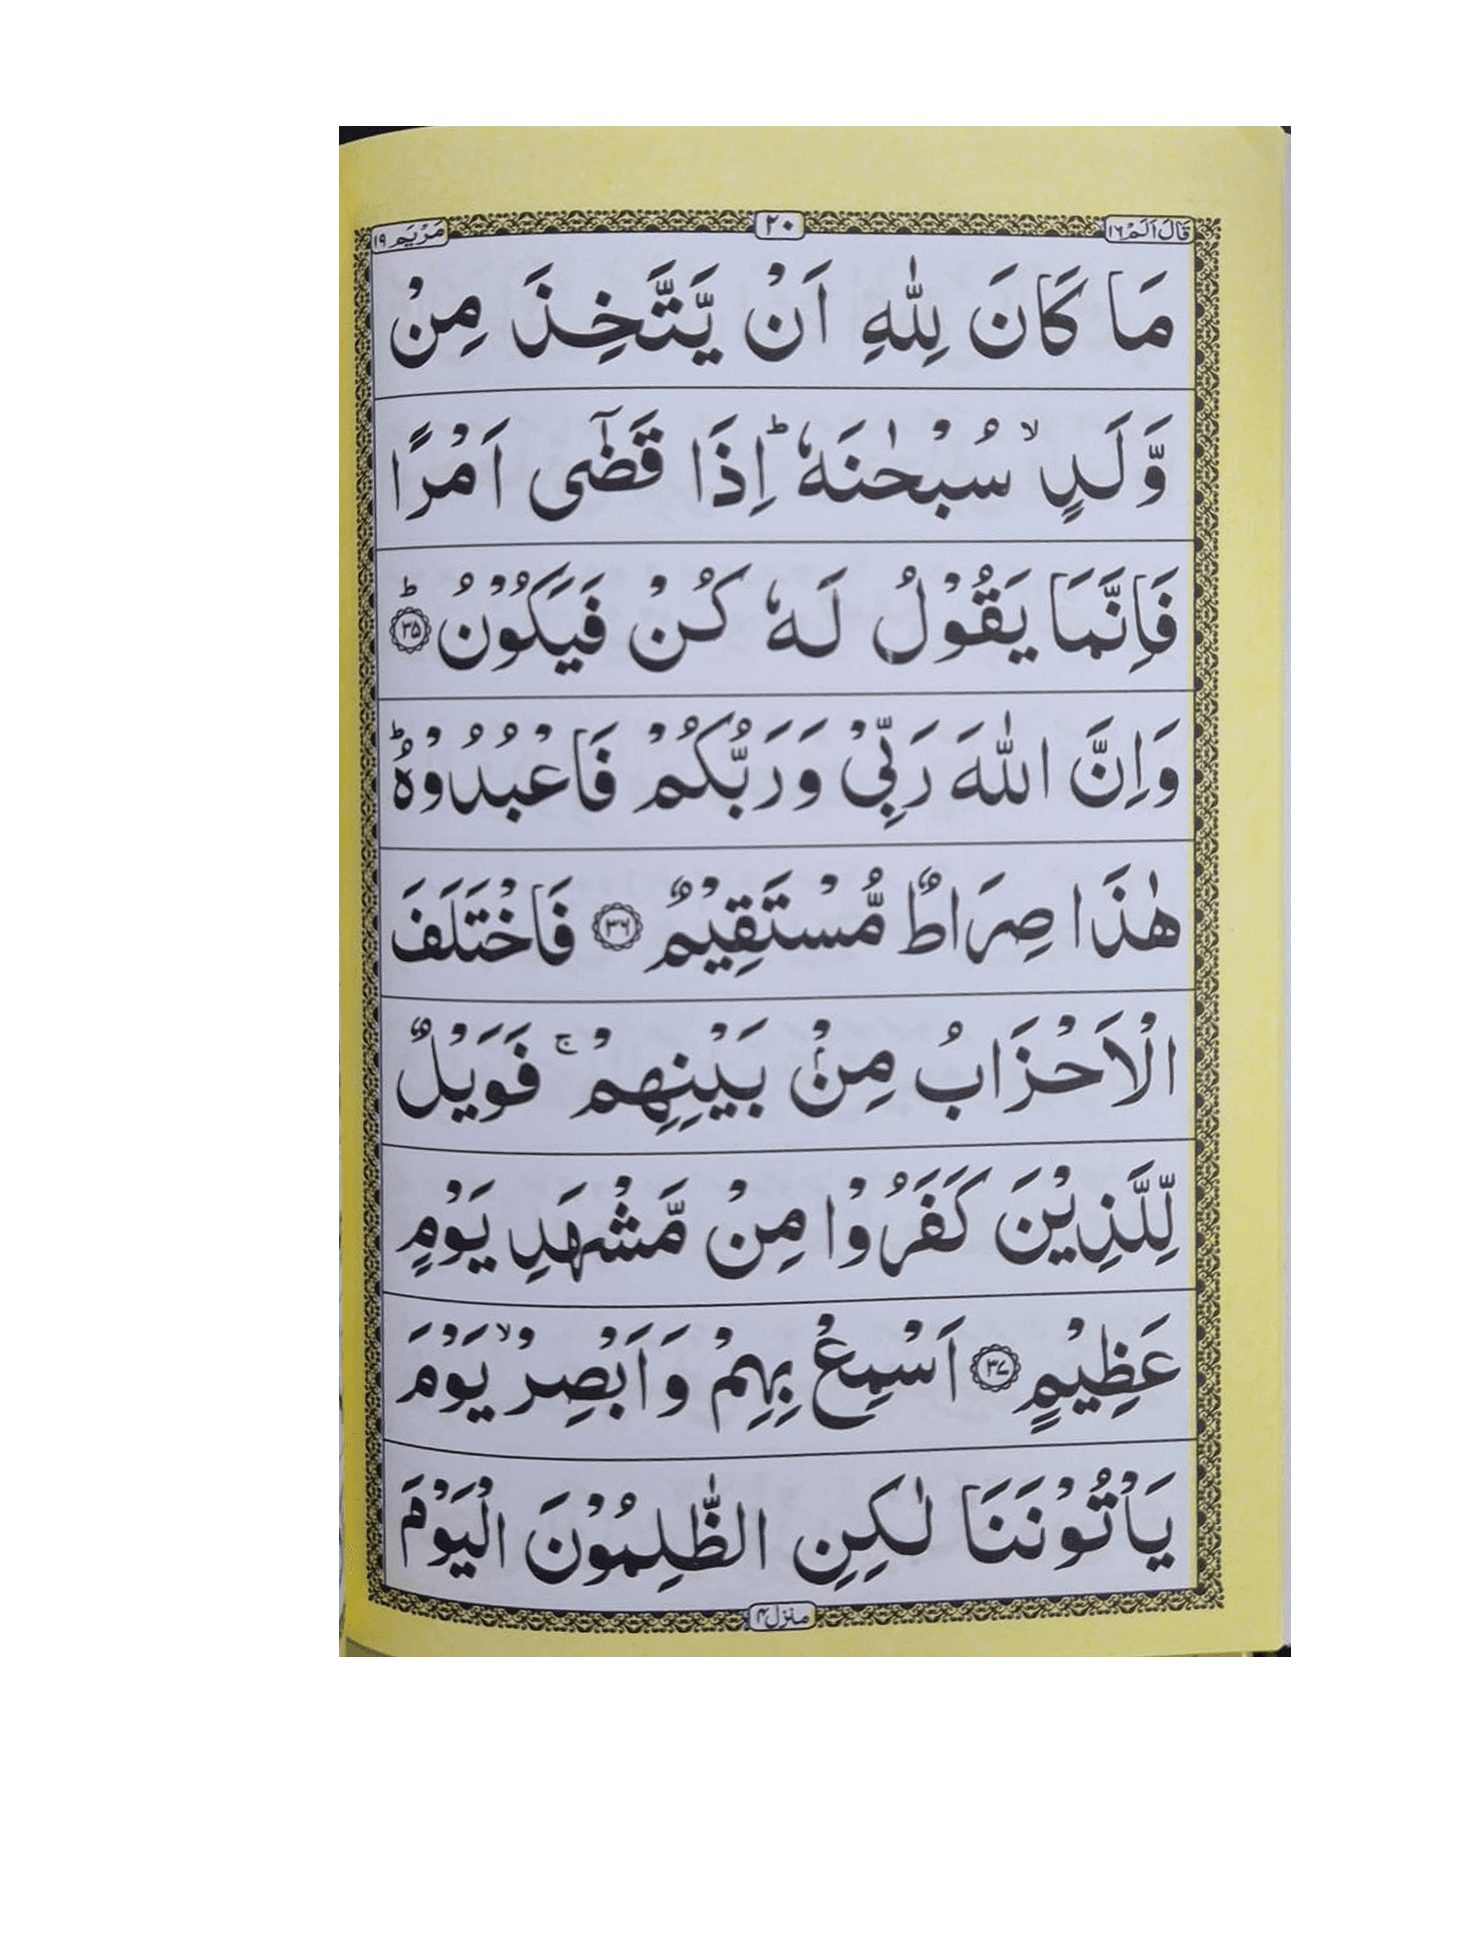 قَالَ اَلَمْ ١٦
٢٠
مَرْیَم ١٩
مَا كَانَ لِلّٰهِ اَنْ يَّتَّخِذَ مِنْ
وَّلَدٍ ۙ سُبْحٰنَهٗ ؕ اِذَا قَضٰۤى اَمْرًا
فَاِنَّمَا يَقُوْلُ لَهٗ كُنْ فَيَكُوْنُ ؕ ﴿۳۵﴾
وَاِنَّ اللّٰهَ رَبِّىْ وَرَبُّكُمْ فَاعْبُدُوْهُ ؕ
هٰذَا صِرَاطٌ مُّسْتَقِيْمٌ ﴿۳۶﴾ فَاخْتَلَفَ
الْاَحْزَابُ مِنْۢ بَيْنِهِمْ ۚ فَوَيْلٌ
لِّلَّذِيْنَ كَفَرُوْا مِنْ مَّشْهَدِ يَوْمٍ
عَظِيْمٍ ﴿۳۷﴾ اَسْمِعْ بِهِمْ وَاَبْصِرْ ۙ يَوْمَ
يَاْتُوْنَنَا لٰكِنِ الظّٰلِمُوْنَ الْيَوْمَ
منزل ۴